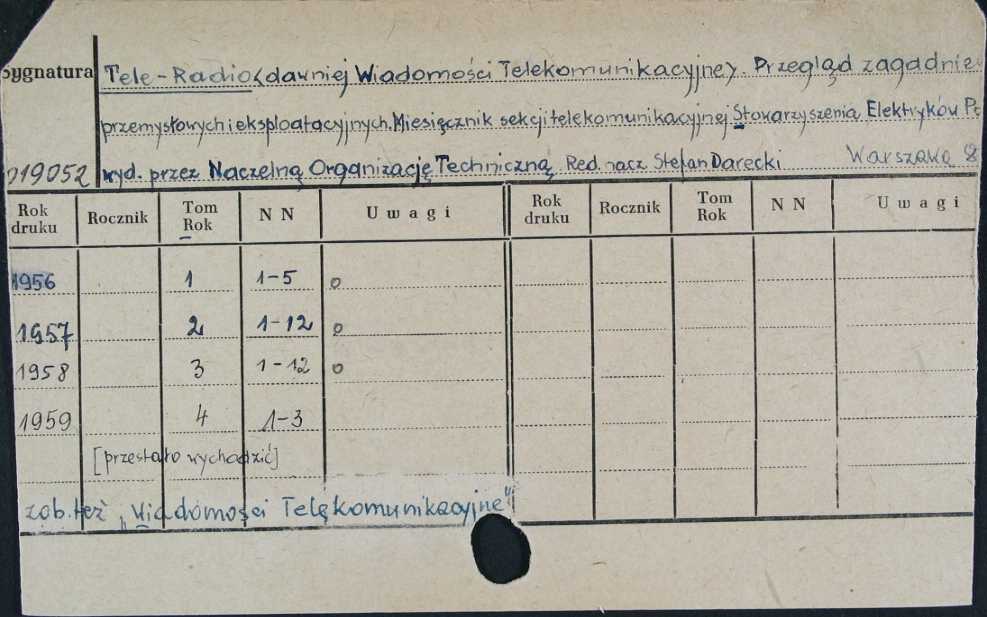 Sygnatura Tele-Radio (dawniej Wiadomości Telekomunikacyjne). Przegląd zagadnie
przemysłowych i eksploatacyjnych. Miesięcznik sekcji telekomunikacyjnej Stowarzyszenia Elektryków Po
019052 wyd. przez Naczelną Organizację Techniczną Red. nacz. Stefan Darecki Warszawa 8
Rok druku Rocznik Tom Rok N N Uwagi Rok druku Rocznik Tom Rok N N Uwagi
1956 1 1-5 o
1957 2 1-12 o
1958 3 1-12 o
1959 4 1-3
[przestało wychodzić]
zob. też „Wiadomości Telekomunikacyjne"